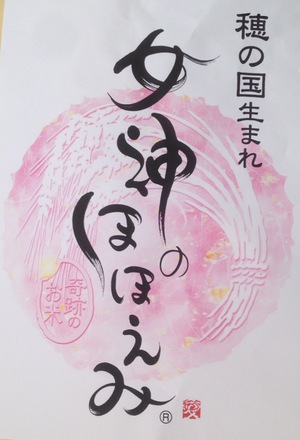 穂の国生まれ
女神の
ほほえみ
®
奇跡の
お米